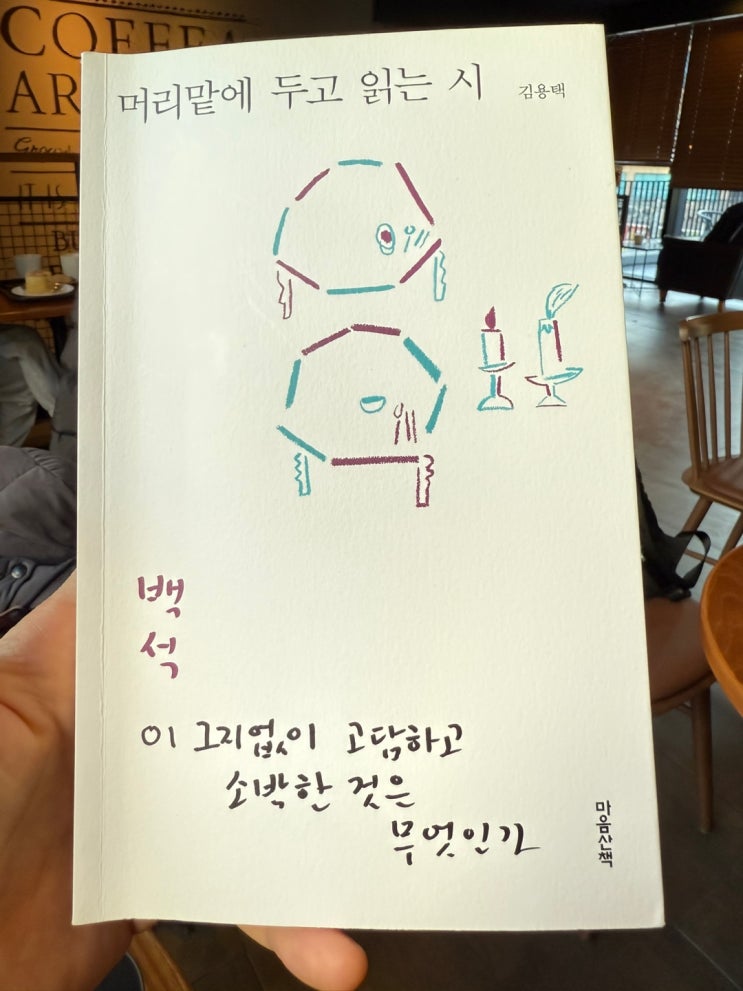 COFFEE
AR
IT IS
머리맡에 두고 읽는 시 김용택
백
석
이 그지없이 고담하고
소박한 것은
무엇인가
마음산책